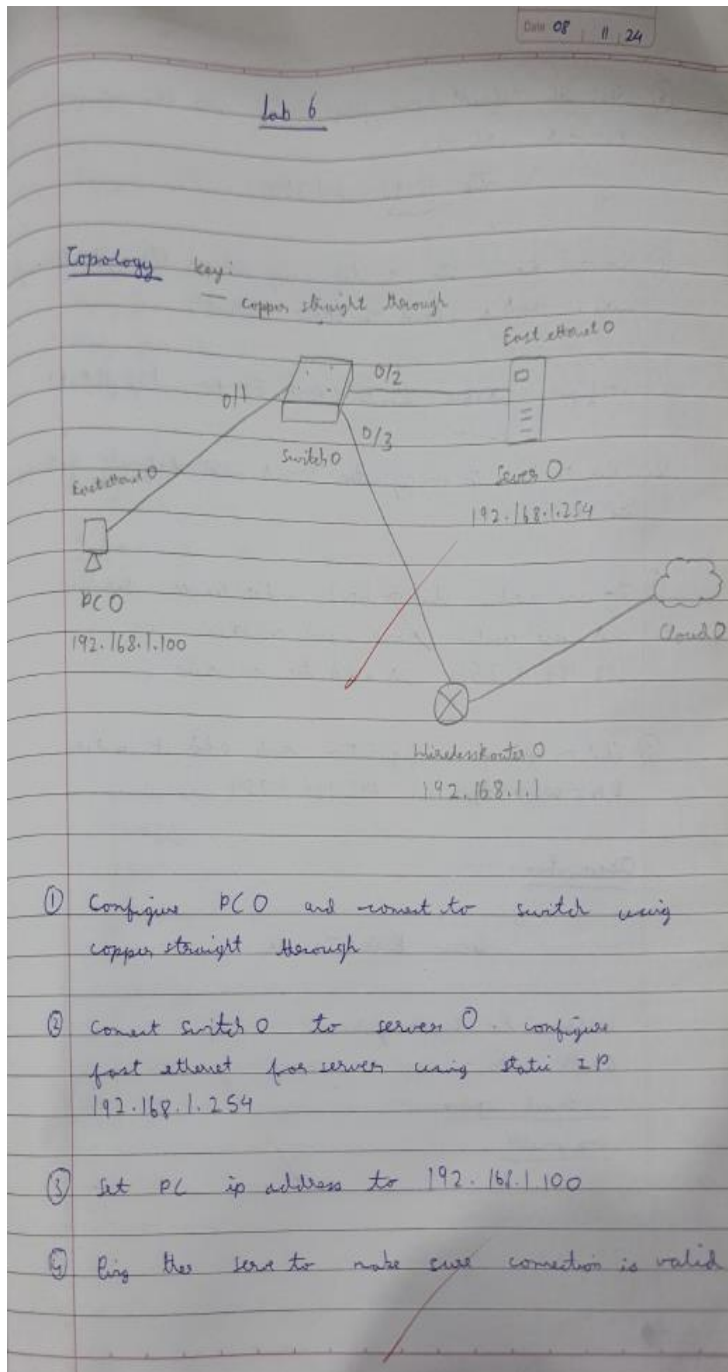 Date 08 11 24
Lab 6
Topology key:
— copper straight through
Fast ethernet 0
0/2
0/1
0/3
Switch 0
Fast ethernet 0
Sever 0
192.168.1.254
PC 0
192.168.1.100
Cloud 0
WirelessRouter 0
192.168.1.1
① Configure PC 0 and connect to switch using
copper straight through
② Connect Switch 0 to server 0. configure
fast ethernet for server using static IP
192.168.1.254
③ Set PC ip address to 192.168.1.100
④ Ping the serve to make sure connection is valid